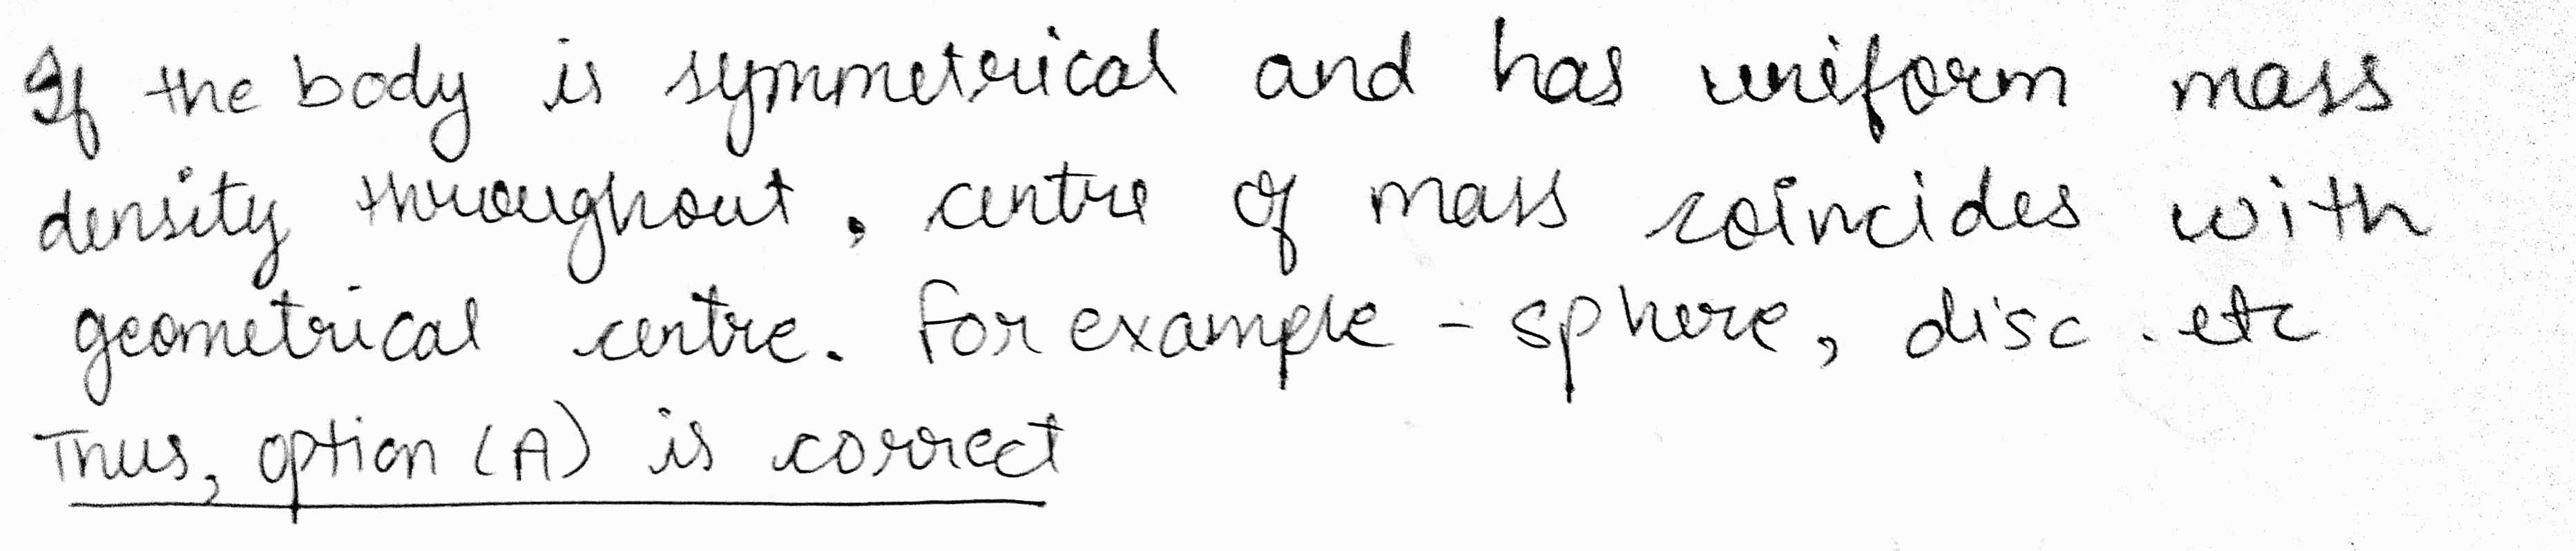 If the body is symmetrical and has uniform mass
density throughout, centre of mass coincides with
geometrical centre. For example - sphere, disc. etc
Thus, option (A) is correct